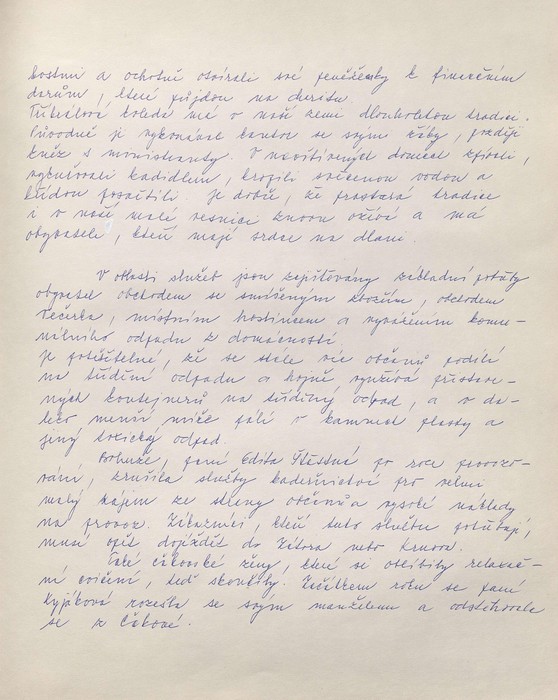 hostmi a ochotně otvírali své peněženky k finančním
darům, které půjdou na charitu.
Tříkrálová koleda má v naší zemi dlouholetou tradici.
Původně ji vykonával kantor se svými žáky, později
kněz s ministranty. V navštívených domech zpívali,
vykuřovali kadidlem, kropili svěcenou vodou a
křídou posvětili. Je dobře, že prastará tradice
i v naší malé vesnici znovu ožívá a má
obyvatele, kteří mají srdce na dlani.
V oblasti služeb jsou zajišťovány základní potřeby
obyvatel obchodem se smíšeným zbožím, obchodem
Večerka, místním hostincem a vyvážením komu-
nálního odpadu z domácností.
Je potěšitelné, že se stále víc občanů podílí
na třídění odpadu a hojně využívá přistave-
ných kontejnerů na tříděný odpad, a v da-
leko menší míře pálí v kamnech plasty a
jiný toxický odpad.
Bohužel, paní Edita Šťastná po roce provozo-
vání, zrušila služby kadeřnictví pro velmi
malý zájem ze strany občanů a vysoké náklady
na provoz. Zákazníci, kteří tuto službu potřebují,
musí opět dojíždět do Zátora nebo Krnova.
Také čakovské ženy, které si oblíbily relaxač-
ní cvičení, teď skončily. Začátkem roku se paní
Kyjáková rozešla se svým manželem a odstěhovala
se z Čakové.